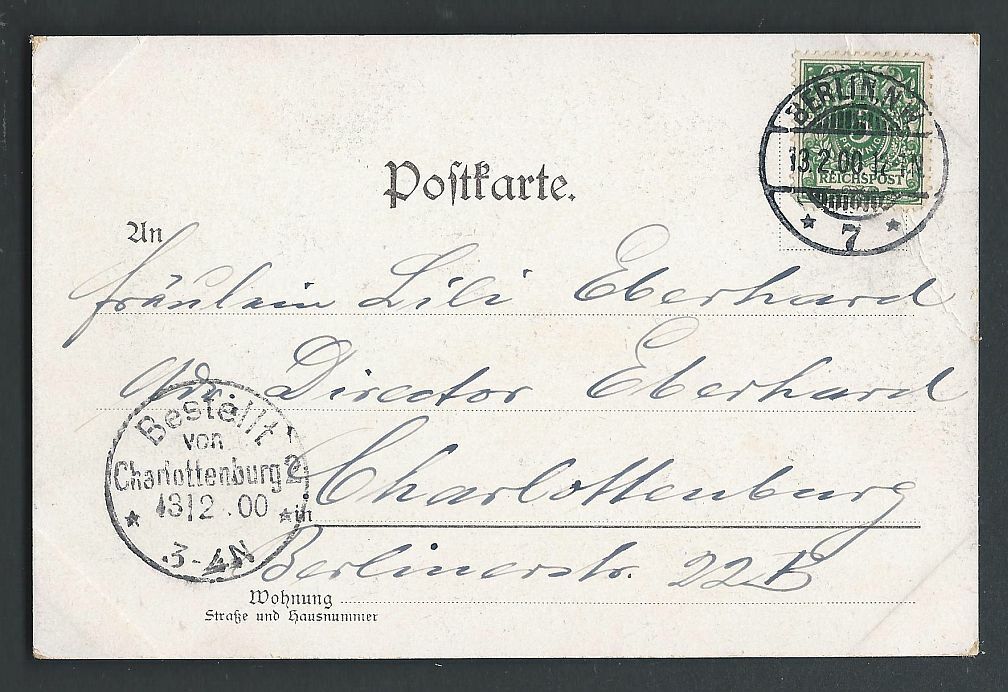 BERLIN.N.W.
13.2.00.12-1N
7
5
REICHSPOST
Postkarte.
An
Fräulein Lili Eberhard
Adr. Director Eberhard
Bestellt
von
Charlottenburg 2
13|2.00
3-4N
in Charlottenburg
Berlinerstr. 22B
Wohnung
Straße und Hausnummer